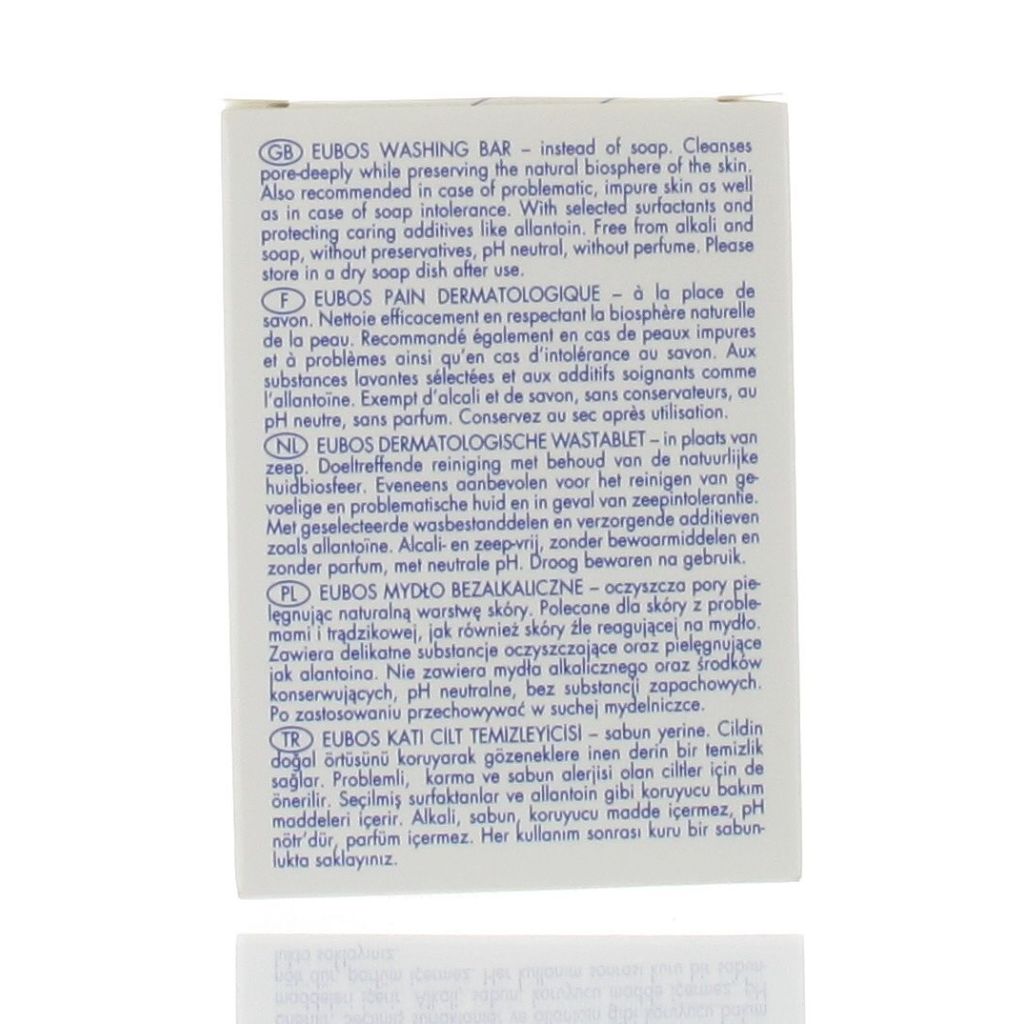 GB EUBOS WASHING BAR – instead of soap. Cleanses
pore-deeply while preserving the natural biosphere of the skin.
Also recommended in case of problematic, impure skin as well
as in case of soap intolerance. With selected surfactants and
protecting caring additives like allantoin. Free from alkali and
soap, without preservatives, pH neutral, without perfume. Please
store in a dry soap dish after use.
F EUBOS PAIN DERMATOLOGIQUE – à la place de
savon. Nettoie efficacement en respectant la biosphère naturelle
de la peau. Recommandé également en cas de peaux impures
et à problèmes ainsi qu'en cas d'intolérance au savon. Aux
substances lavantes sélectées et aux additifs soignants comme
l'allantoïne. Exempt d'alcali et de savon, sans conservateurs, au
pH neutre, sans parfum. Conservez au sec après utilisation.
NL EUBOS DERMATOLOGISCHE WASTABLET – in plaats van
zeep. Doeltreffende reiniging met behoud van de natuurlijke
huidbiosfeer. Eveneens aanbevolen voor het reinigen van ge-
voelige en problematische huid en in geval van zeepintolerantie.
Met geselecteerde wasbestanddelen en verzorgende additieven
zoals allantoïne. Alcali- en zeep-vrij, zonder bewaarmiddelen en
zonder parfum, met neutrale pH. Droog bewaren na gebruik.
PL EUBOS MYDŁO BEZALKALICZNE – oczyszcza pory pie-
lęgnując naturalną warstwę skóry. Polecane dla skóry z proble-
mami i trądzikowej, jak również skóry źle reagującej na mydło.
Zawiera delikatne substancje oczyszczające oraz pielęgnujące
jak alantoina. Nie zawiera mydła alkalicznego oraz środków
konserwujących, pH neutralne, bez substancji zapachowych.
Po zastosowaniu przechowywać w suchej mydelniczce.
TR EUBOS KATI CİLT TEMİZLEYİCİSİ – sabun yerine. Cildin
doğal örtüsünü koruyarak gözeneklere inen derin bir temizlik
sağlar. Problemli, karma ve sabun alerjisi olan ciltler için de
önerilir. Seçilmiş surfaktanlar ve allantoin gibi koruyucu bakım
maddeleri içerir. Alkali, sabun, koruyucu madde içermez, pH
nötr'dür, parfüm içermez. Her kullanım sonrası kuru bir sabun-
lukta saklayınız.